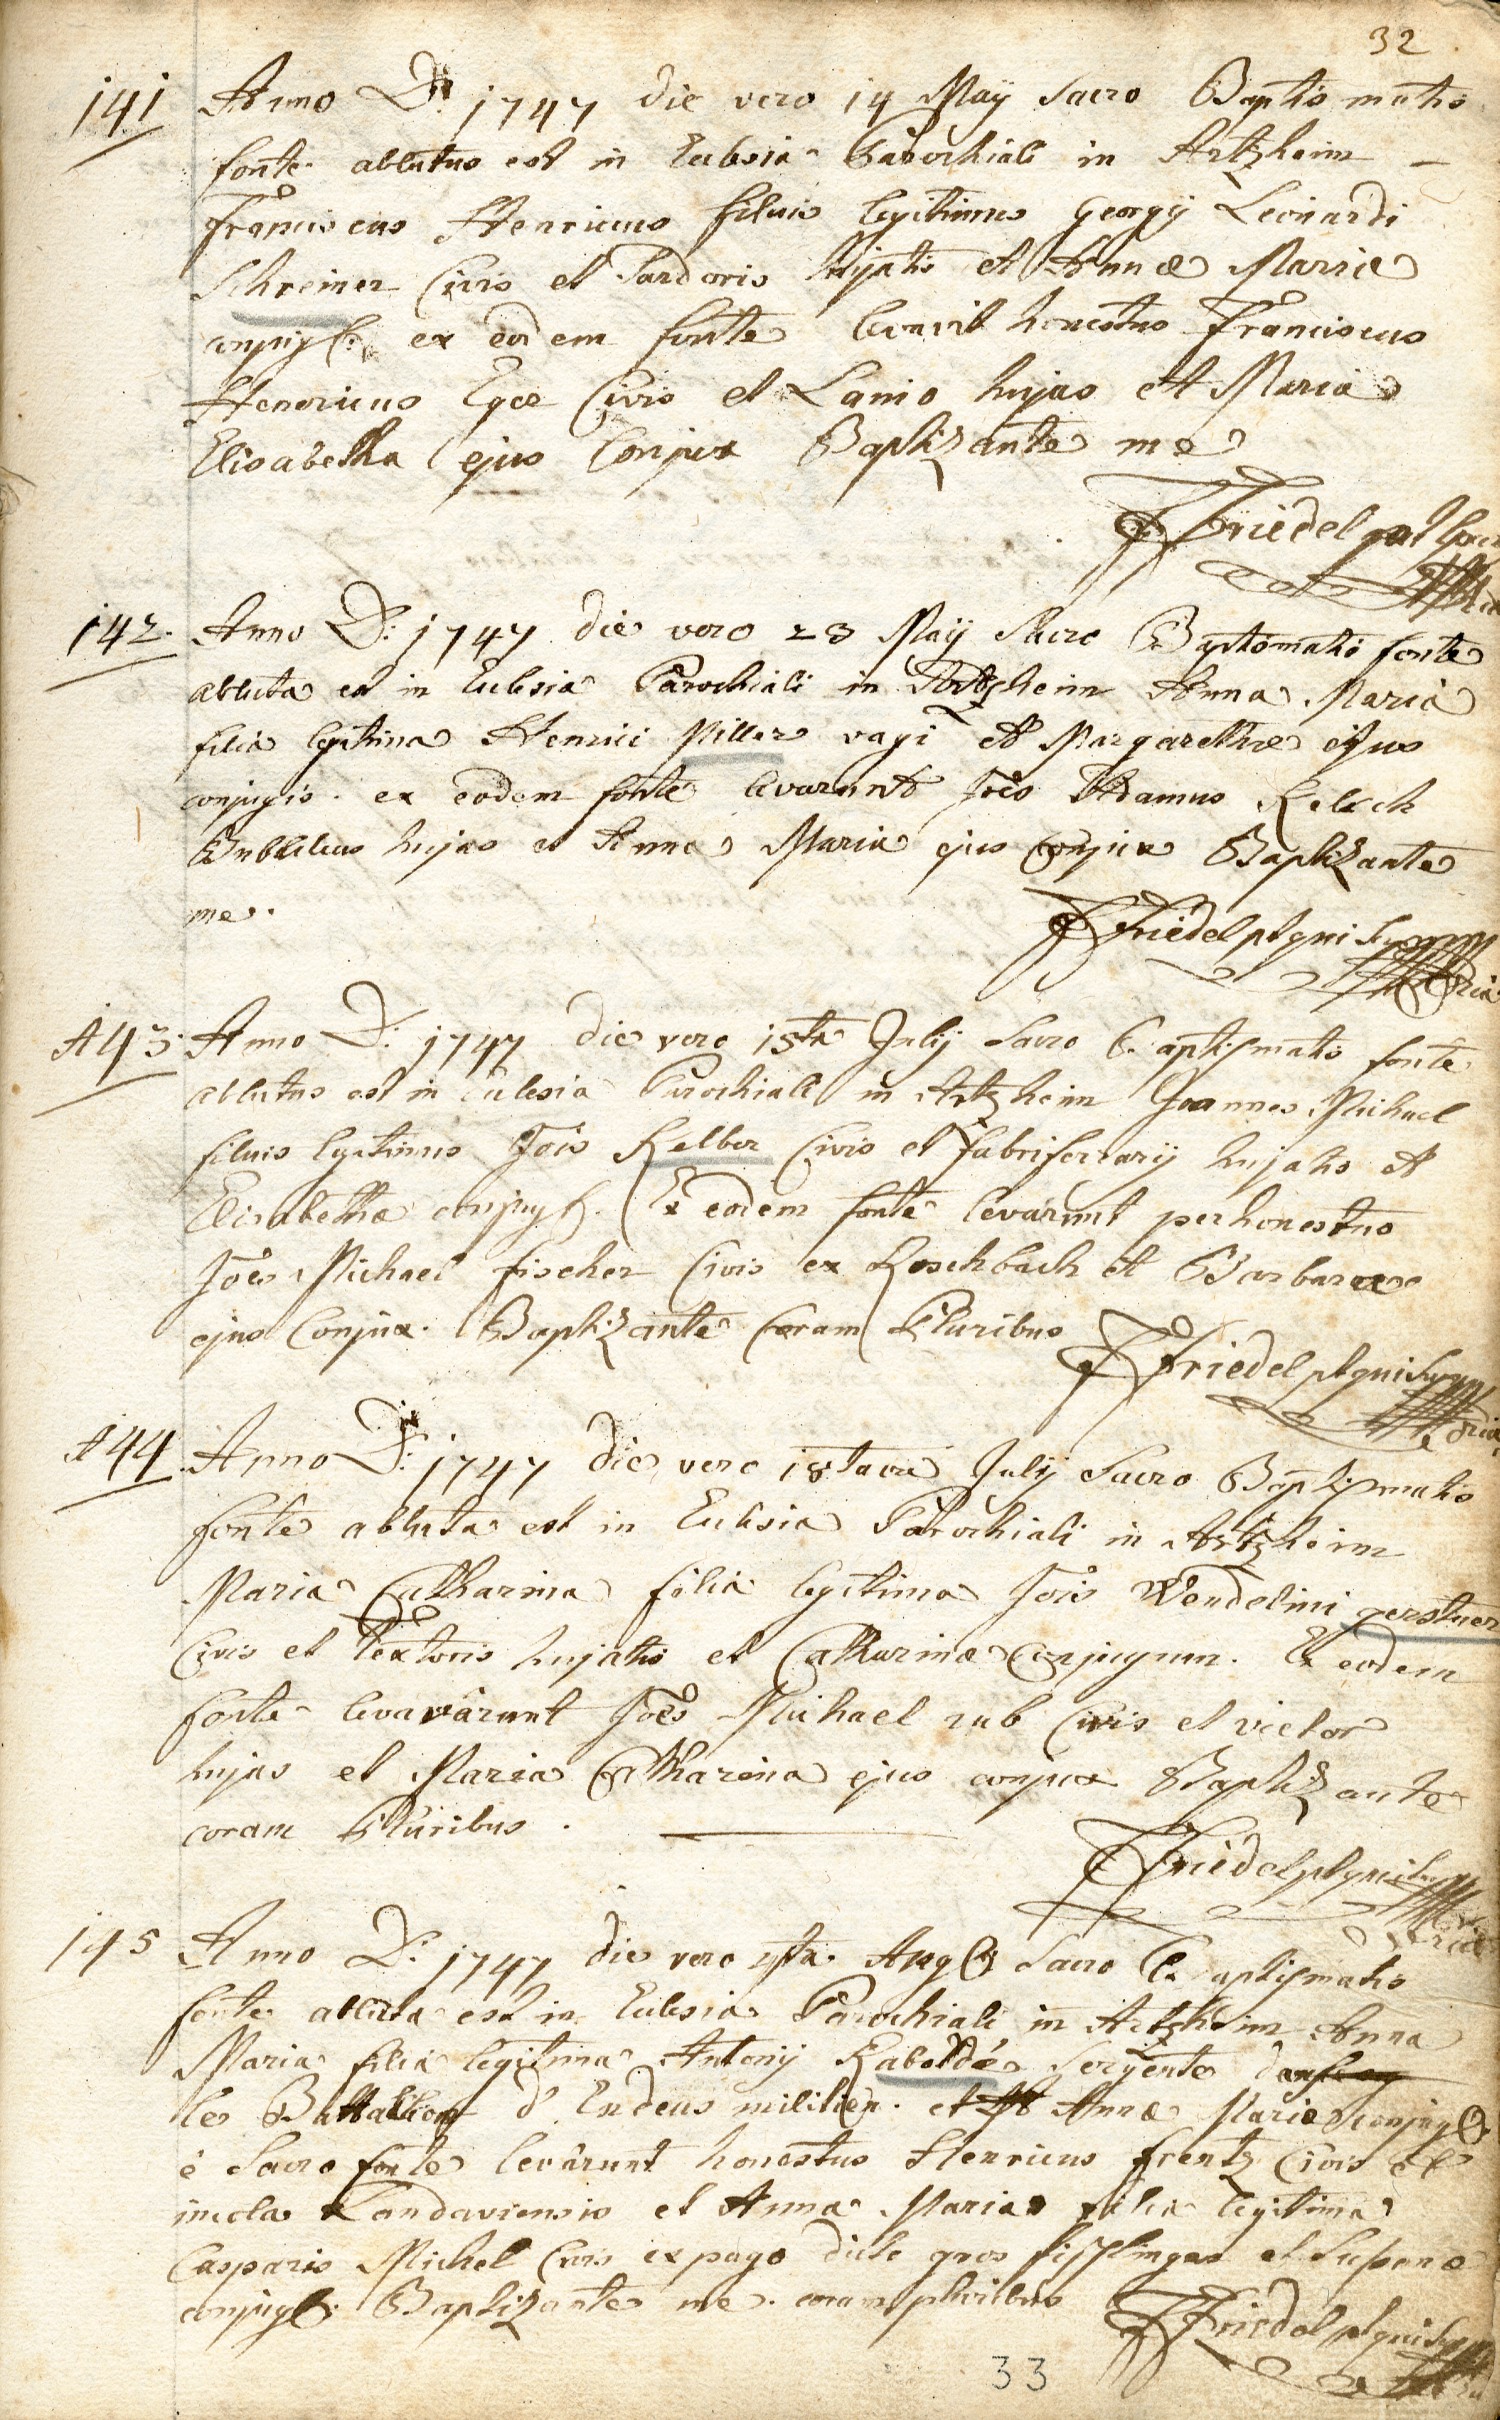 32
141 Anno D: 1747 die vero 14 Maÿ Sacro Baptis matis
fonte ablutus est in Eclesia Parochiali in Artzheim –
Franciscus Henricus filius legitimus Georgÿ Leonardi
Schreiner Civis et Sardoris hujatis et Annæ Mariæ
conjug: ex eodem fonte levavit honestus Franciscus
Henericus Ege Civis et Lanio hujas et Maria
Elisabetha ejus Conjux Baptizante me
Friedel
142. Anno D: 1747 die vero 23 Maÿ Sacro Baptismatis fonte
abluta est in Eclesia Parochiali in Artzheim Anna Maria
filia legitima Henrici Miller vagi et Margarethæ ejus
conjugis. ex eodem fonte levarunt Joes Adamus Kelsch
Bubulcus hujas et Anna Maria ejus conjux Baptizante
me.
Friedel
143. Anno D: 1747 die vero 15ta Julÿ Sacro Baptismatis fonte
ablutus est in Eclesia Parochiali in Artzheim Joannes Michael
filius legitimus Jois Kelber Civis et fabriferrarÿ hujatis et
Elisabethæ conjug. Ex eodem fonte levârunt perhonestus
Joes Michael fischer Civis ex Roschbach et Barbara
ejus Conjux. Baptizante Coram Pluribus
Friedel
144 Anno D: 1747 die vero 18tava Julÿ Sacro Baptismatis
fonte abluta est in Eclesia Parochiali in Artzheim
Maria Catharina filia legitima Jois Wendelini gerstner
Civis et Textoris hujatis et Catharinæ Conjugum. Ex eodem
fonte levavârunt Joes Michael rub Civis et vietor
hujas et Maria Catharina ejus conjux Baptizante
coram Pluribus.
Friedel
145 Anno D: 1747 die vero Aug Sacro Baptismatis
fonte abluta est in Eclesia Parochiali in Artzheim Anna
Maria filia legitima Antonÿ Raboldé Serjente
le Battalion d' Endeus milition. et Annæ Mariæ conjug
è Sacro fonte levârunt honestus Henricus frentz Civis et
incola Landaviensis et Anna Maria filia legitima
Casparis Michel Civis ex pago dicto gros fischlingen et
conjug. Baptizante me. coram pluribus
Friedel
33